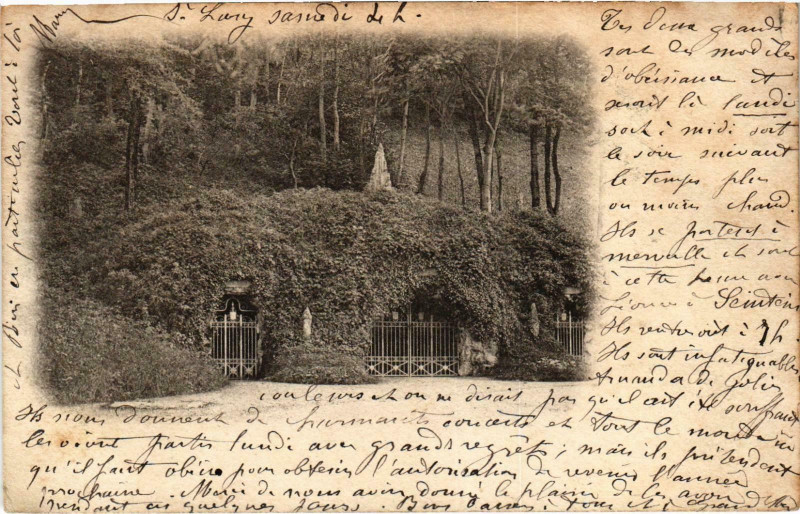 St Lary samedi de h.
Tes deux grands
sont des modèles
d'obéissance et
soit à midi soit
le soir suivant
le temps plus
ou moins chaud.
Ils se portent à
merveille et sont
à cette heure avec
à
Ils rentreront à 7h
Ils sont infatiguables
de jolies
couleurs et on ne dirait pas qu'il ait été souffrant
Ils nous donnent de charmants concerts et tout le monde
les verra partir lundi avec grands regrets; mais ils prétendent
qu'il faut obéir pour obtenir l'autorisation de revenir l'année
prochaine. Merci de nous avoir donné le plaisir de les avoir
pendant ces quelques jours. Bons baisers à tous et à
et Bien en particulier